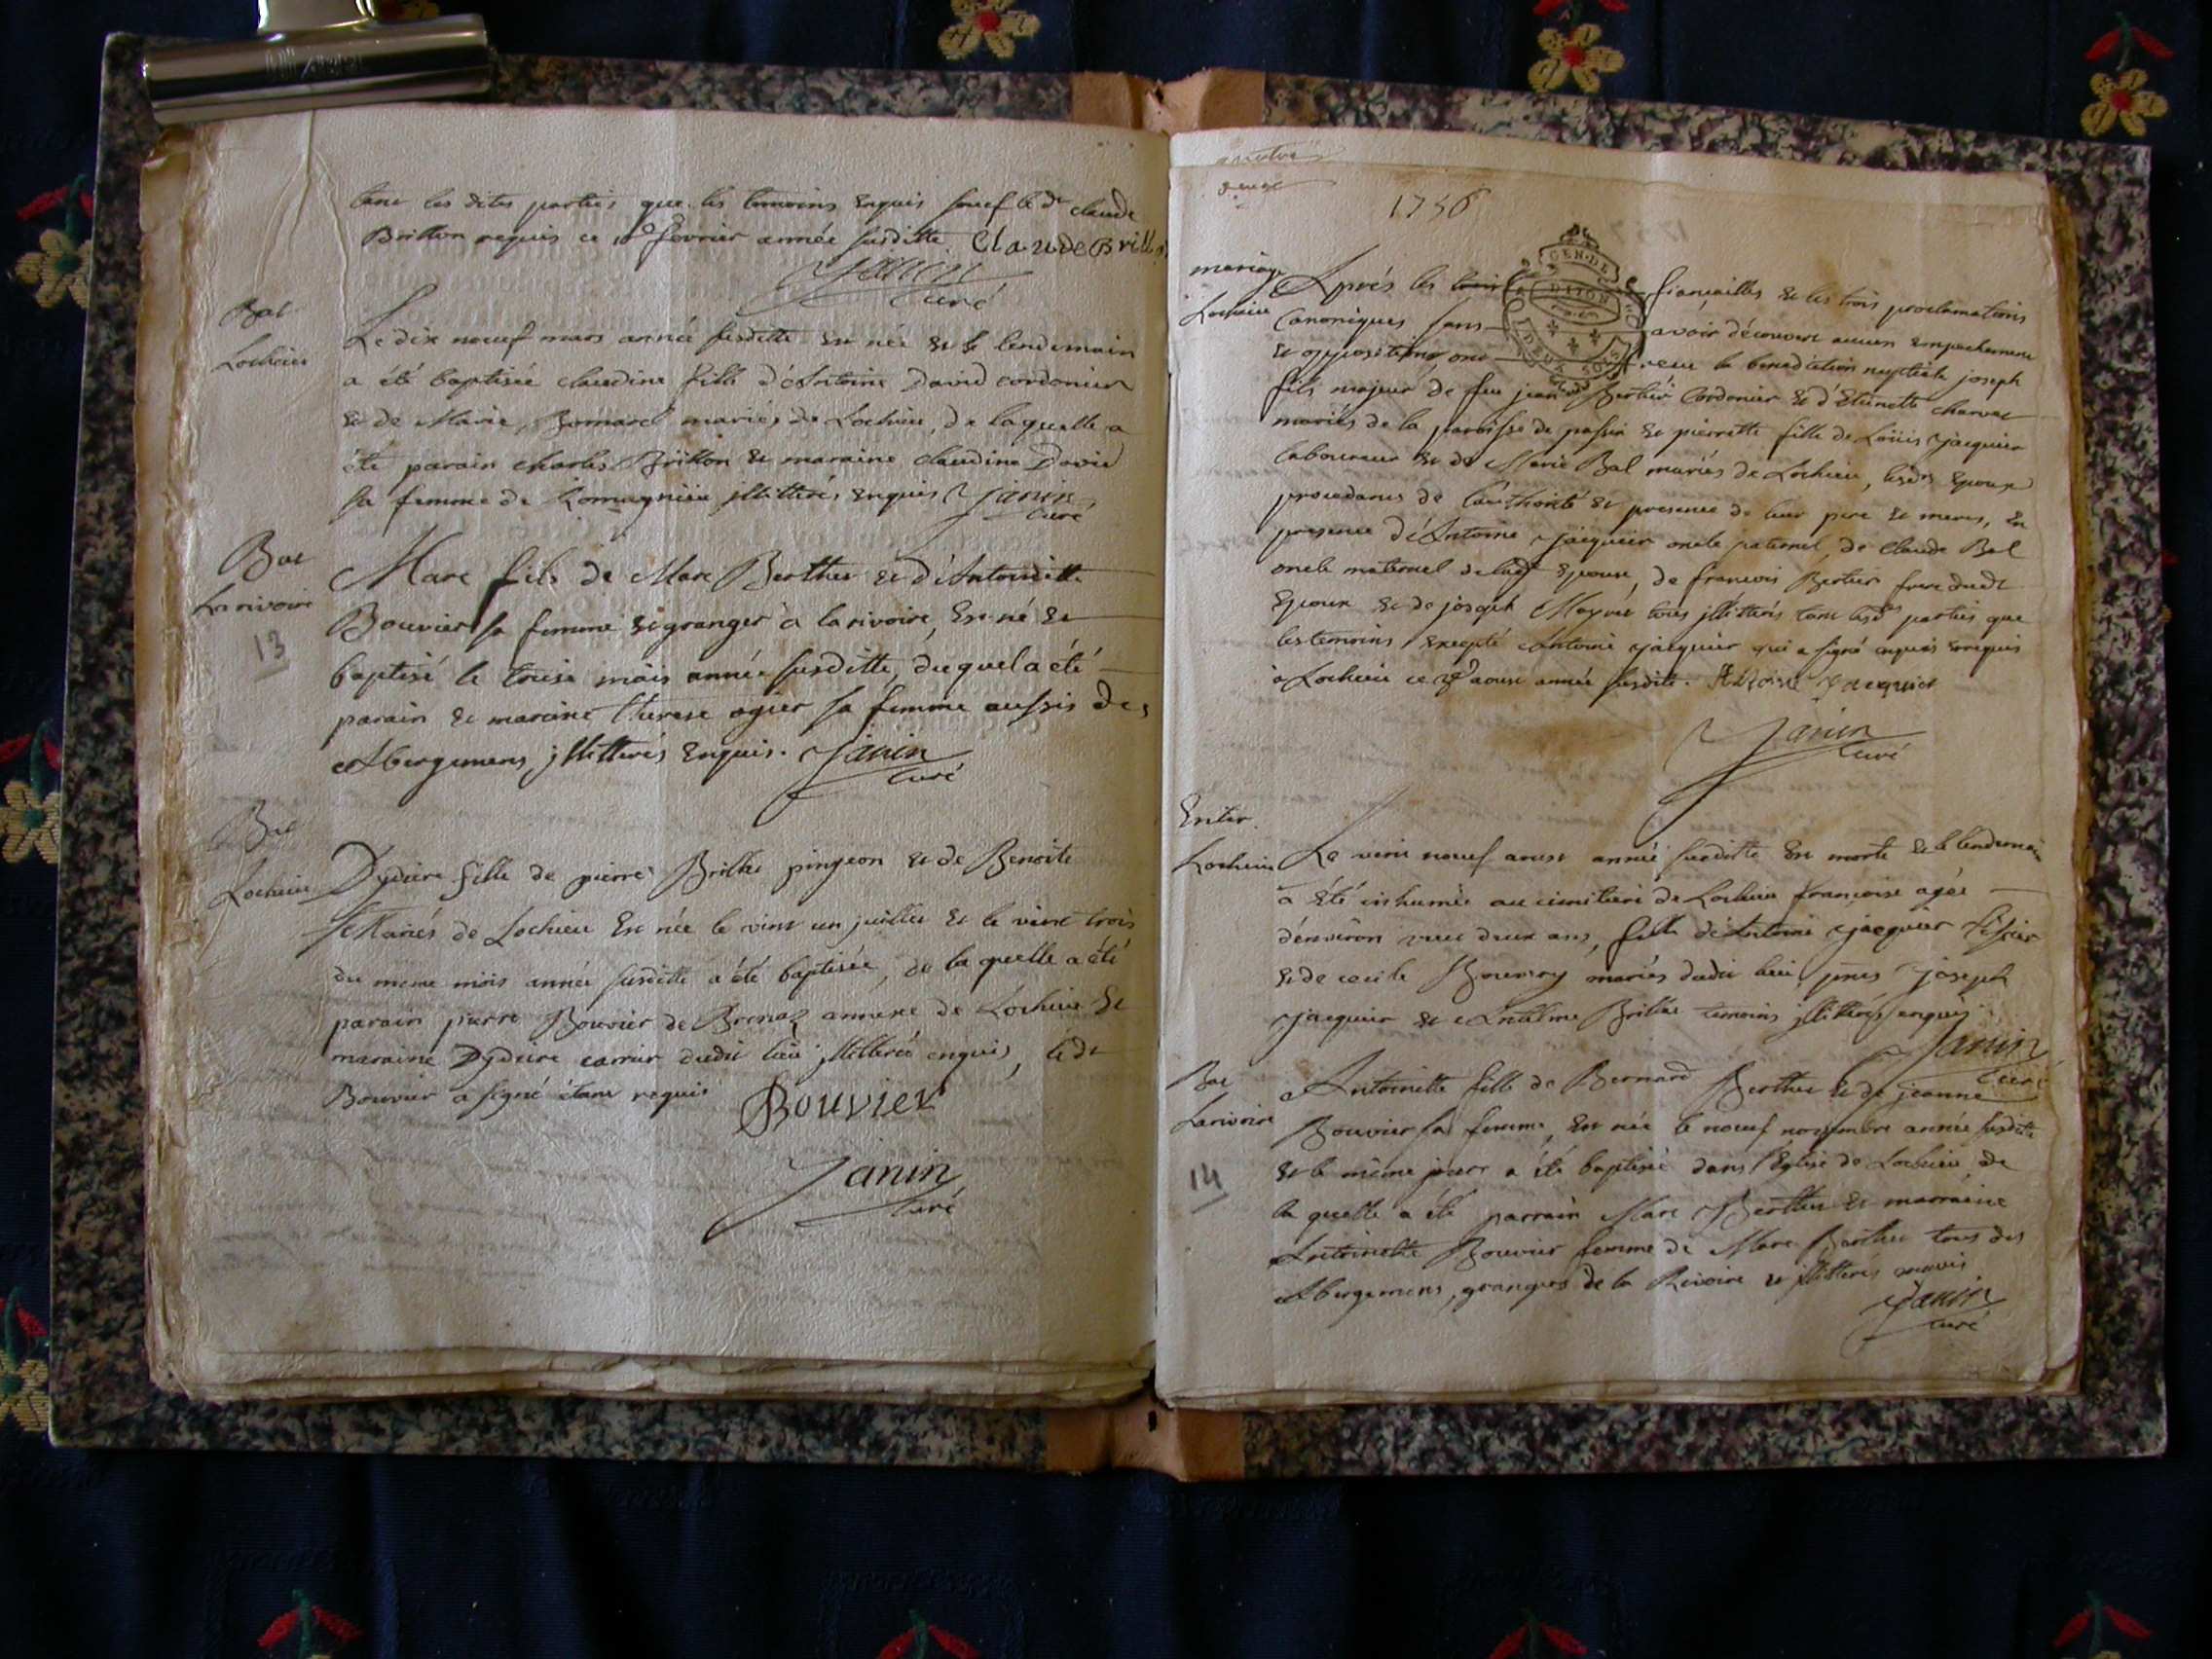 tant les dites parties que les temoins enquis sauf le dt claude
Britton requis ce fevrier année susditte. Claude Brill
Janin
curé
Bat
Lochieu
Le dix neuf mars année susditte est née et le lendemain
a été baptisée claudine fille d'Antoine David cordonier
et de Marie mariés de Lochieu, de laquelle a
été parain charles Britton et maraine claudine David
sa femme de illitterés enquis Janin
curé
Bat
La rivoire
13
Marc fils de Marc Berthet et d'Antoinette
Bouvier sa femme et granger à la rivoire, est né et
baptisé le année susditte, duquel a été
parain et maraine therese ogier sa femme aussis des
Abergemens, jllitterés enquis. Janin
curé
Bat
Lochieu
Dydiere fille de pierre Brillat pingeon et de Benoite
Mariés de Lochieu est née le vint un juillet et le vint trois
du meme mois année susditte a été baptisée, de la quelle a été
parain pierre Bouvier de Brenaz annexe de Lochieu et
maraine Dydiere carrier dudit lieu jllitterée enquis, le dt
Bouvier a signé étant requis Bouvier
Janin
curé
1756
mariage
Lochieu
Aprés les fiançailles et les trois proclamations
GEN. DE
DIJON
DEUX SOLS
Canoniques sans avoir découvert aucun empechement
et opposition, ont receu la benediction nuptiale joseph
fils majeur de feu jean Bertier Cordonier et d'Etiennette charvet
mariés de la paroisse de passin et pierrette fille de Loüis jacquier
laboureur et de Marie Bal mariés de Lochieu, lesdts Epoux
procedants de l'authorité et presence de leur pere et meres, en
presence d'Antoine jacquier oncle paternel, de Claude Bal
oncle maternel de ladt Epouse, de francois Bertier frere dudt
Epoux et de joseph tous jllitterés tant lesdts parties que
les temoins excepté Antoine jacquier qui a signé enquis
à Lochieu ce aoust année susdite. jacquier
Janin
curé
Enter.
Lochieu
Le vint neuf aoust année susditte est morte et le lendemain
a été inhumée au cimitiere de Lochieu francoise agée
d'environ vint deux ans, fille d'Antoine jacquier tissier
et de cecile mariés dudit lieu, pnts joseph
jacquier et Antelme Brillat temoins jllitterés enquis
Janin
curé
Bat
Larivoire
14
Antoinette fille de Bernard Berthet et de jeanne
Bouvier sa femme, est née le neuf novembre année susditte
et le même jour a été baptisée dans l'Eglise de Lochieu de
la quelle a été parrain Marc Berthet et marraine
Antoinette Bouvier femme de Marc Berthet tous des
Abergemens, grangers de la Rivoire et jllitterés enquis
Janin
curé